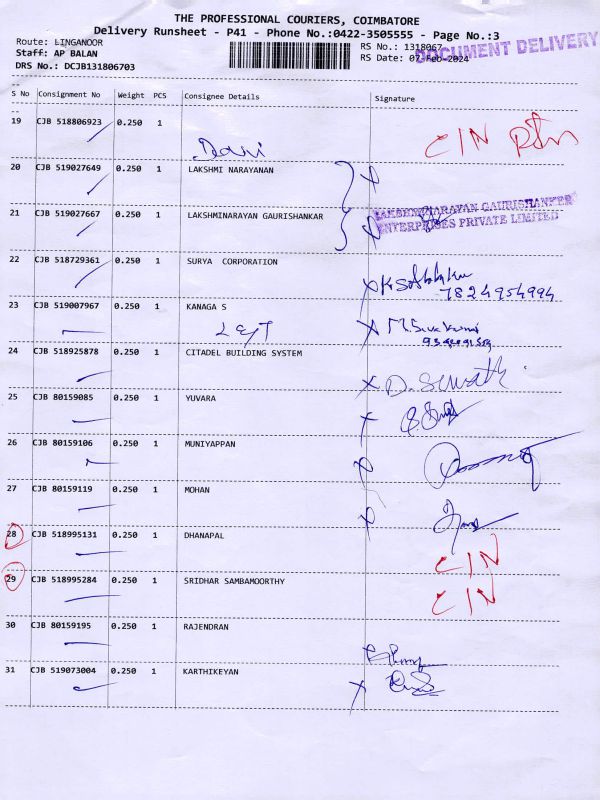 THE PROFESSIONAL COURIERS, COIMBATORE
Delivery Runsheet - P41 - Phone No.:0422-3505555 - Page No.:3
Route: LINGANOOR RS No.: 1318067
DOCUMENT DELIVERY
Staff: AP BALAN RS Date: 07-Feb-2024
DRS No.: DCJB131806703
S No Consignment No Weight PCS Consignee Details Signature
19 CJB 518806923 0.250 1
C/N
20 CJB 519027649 0.250 1 LAKSHMI NARAYANAN
LAKSHMINARAYAN GAURISHANKER
21 CJB 519027667 0.250 1 LAKSHMINARAYAN GAURISHANKAR
ENTERPRISES PRIVATE LIMITED
22 CJB 518729361 0.250 1 SURYA CORPORATION
7824954994
23 CJB 519007967 0.250 1 KANAGA S
24 CJB 518925878 0.250 1 CITADEL BUILDING SYSTEM
25 CJB 80159085 0.250 1 YUVARA
26 CJB 80159106 0.250 1 MUNIYAPPAN
27 CJB 80159119 0.250 1 MOHAN
28 CJB 518995131 0.250 1 DHANAPAL
C/N
29 CJB 518995284 0.250 1 SRIDHAR SAMBAMOORTHY
C/N
30 CJB 80159195 0.250 1 RAJENDRAN
31 CJB 519073004 0.250 1 KARTHIKEYAN